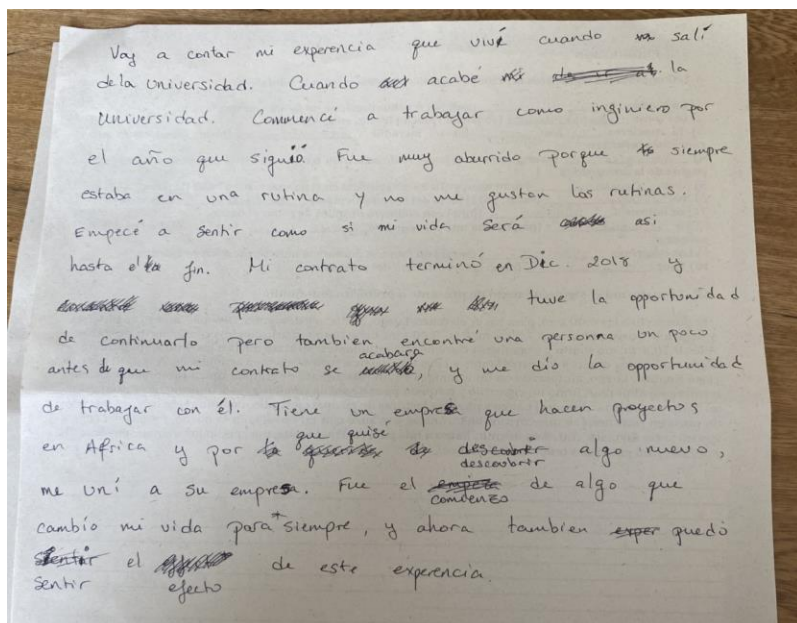 Voy a contar mi experencia que viví cuando salí
dela Universidad. Cuando acabé la
Universidad. Commencé a trabajar como inginiero por
el año que siguió. Fue muy aburrido porque siempre
estaba en una rutina y no me gustan las rutinas.
Empecé a sentir como si mi vida será asi
hasta el fin. Mi contrato terminó en Dic. 2018 y
tuve la opportunidad
de continuarlo pero tambien encontré una personna un poco
antes de que mi contrato se acabara, y me dio la opportunidad
de trabajar con él. Tiene un empresa que hacen proyectos
en Africa y por que quisé descoubrir algo nuevo,
me uní a su empresa. Fue el comienzo de algo que
cambío mi vida para siempre, y ahora tambien puedo
sentir el efecto de este experencia.